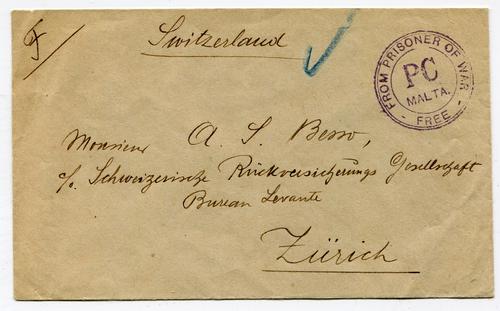 F
Switzerland
FROM PRISONER OF WAR
PC
MALTA.
- FREE -
Monsieur A. S. Besso,
c/o Schweizerische Rückversicherungs Gesellschaft
Bureau Levante
Zürich